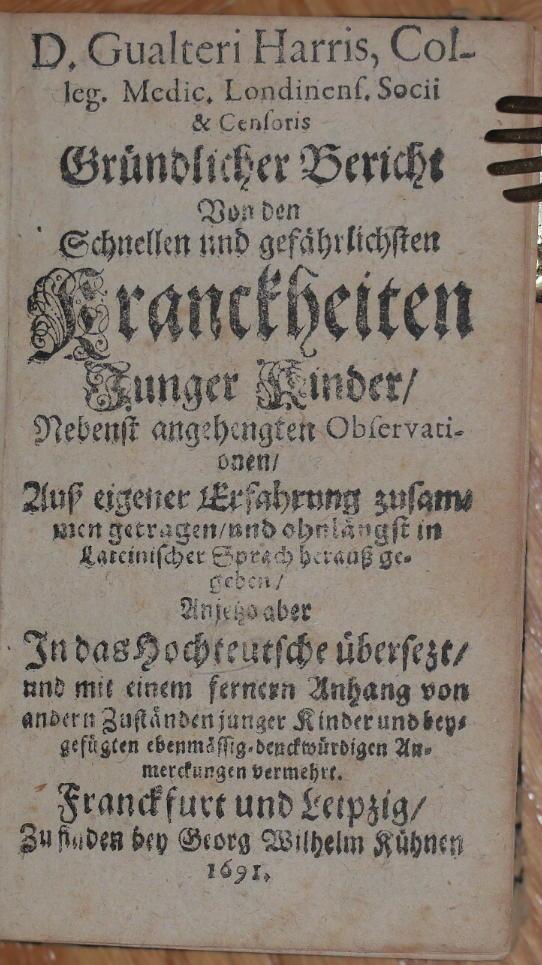 D. Gualteri Harris, Col-
leg. Medic. Londinenſ. Socii
& Cenſoris
Gründlicher Bericht
Von den
Schnellen und gefährlichſten
Kranckheiten
Junger Kinder/
Nebenſt angehengten Obſervati-
onen/
Auß eigener Erfahrung zuſam-
men getragen/und ohnlängſt in
Lateiniſcher Sprach herauß ge-
geben/
Anjetzo aber
In das Hochteutſche überſezt/
und mit einem fernern Anhang von
andern Zuſtänden junger Kinder und bey-
gefügten ebenmäſſig-denckwürdigen An-
merckungen vermehrt.
Franckfurt und Leipzig/
Zu finden bey Georg Wilhelm Kühnen
1691.